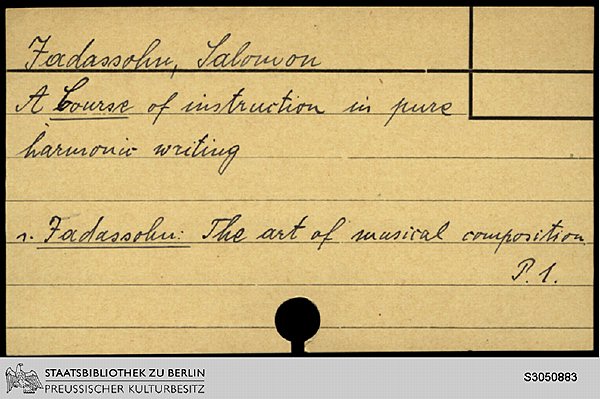 Jadassohn, Salomon
A Course of instruction in pure
harmonic writing
s. Jadassohn: The art of musical composition
P. 1.
STAATSBIBLIOTHEK ZU BERLIN
PREUSSISCHER KULTURBESITZ
S3050883